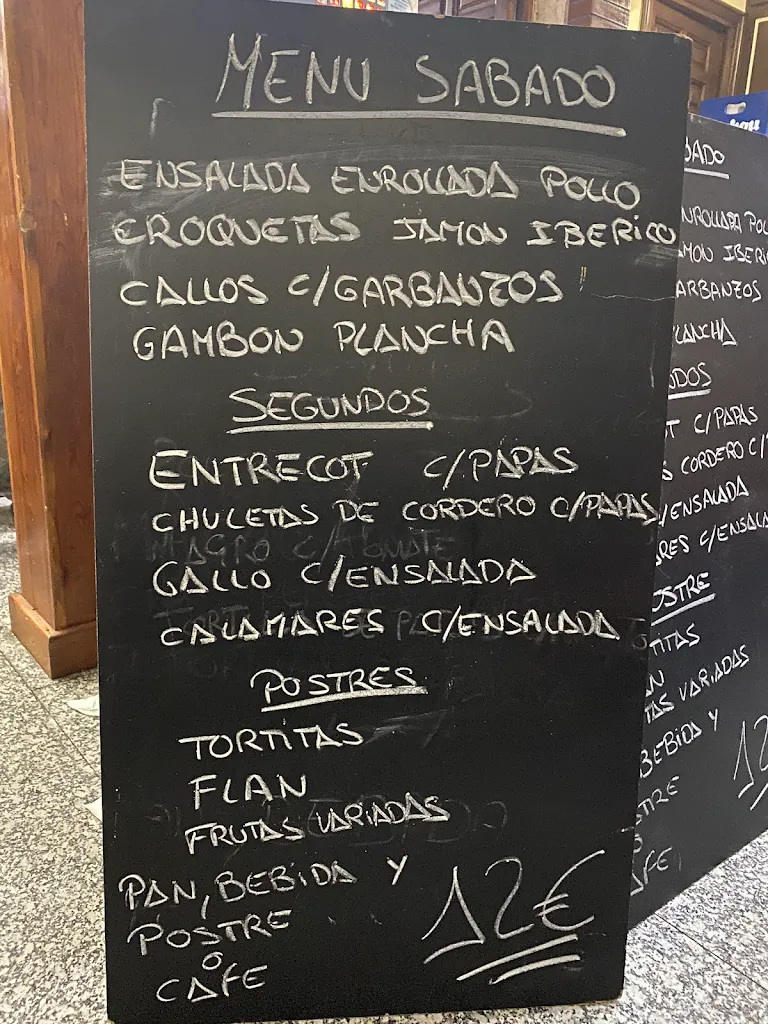 MENU SABADO
ENSALADA ENROLLADA POLLO
CROQUETAS JAMON IBERICO
CALLOS C/GARBANZOS
GAMBON PLANCHA
SEGUNDOS
ENTRECOT C/PAPAS
CHULETAS DE CORDERO C/PAPAS
GALLO C/ENSALADA
CALAMARES C/ENSALADA
POSTRES
TORTITAS
FLAN
FRUTAS VARIADAS
PAN, BEBIDA Y
POSTRE
O
CAFE
12€
BADO
NROLLADA POL
AMON IBERI
ARBANZOS
LANCHA
NDOS
OT C/PAPAS
S CORDERO C/
/ENSALADA
ARES C/ENSALA
OSTRE
TITAS
AN
TAS VARIADAS
BEBIDA Y
STRE
O
AFE
12